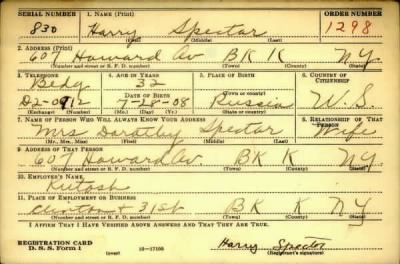 SERIAL NUMBER 1. NAME (Print) ORDER NUMBER
830 Harry Spector 1298
(First) (Middle) (Last)
2. ADDRESS (Print)
607 Howard Av BK K NY.
(Number and street or R. F. D. number) (Town) (County) (State)
3. TELEPHONE 4. AGE IN YEARS 5. PLACE OF BIRTH 6. COUNTRY OF CITIZENSHIP
32
DATE OF BIRTH
D2-0912 7-28-08 Russia U.S.
(Exchange) (Number) (Mo.) (Day) (Yr.) (State or country)
7. NAME OF PERSON WHO WILL ALWAYS KNOW YOUR ADDRESS 8. RELATIONSHIP OF THAT PERSON
Mrs Dorothy Spector Wife
(Mr., Mrs., Miss) (First) (Middle) (Last)
9. ADDRESS OF THAT PERSON
607 Howard Av. BK K NY
(Number and street or R. F. D. number) (Town) (County) (State)
10. EMPLOYER'S NAME
11. PLACE OF EMPLOYMENT OR BUSINESS
+ 31st BK K NY
(Number and street or R. F. D. number) (Town) (County) (State)
I AFFIRM THAT I HAVE VERIFIED ABOVE ANSWERS AND THAT THEY ARE TRUE.
REGISTRATION CARD
D. S. S. Form 1 (over) 16-17105 Harry Spector
(Registrant's signature)